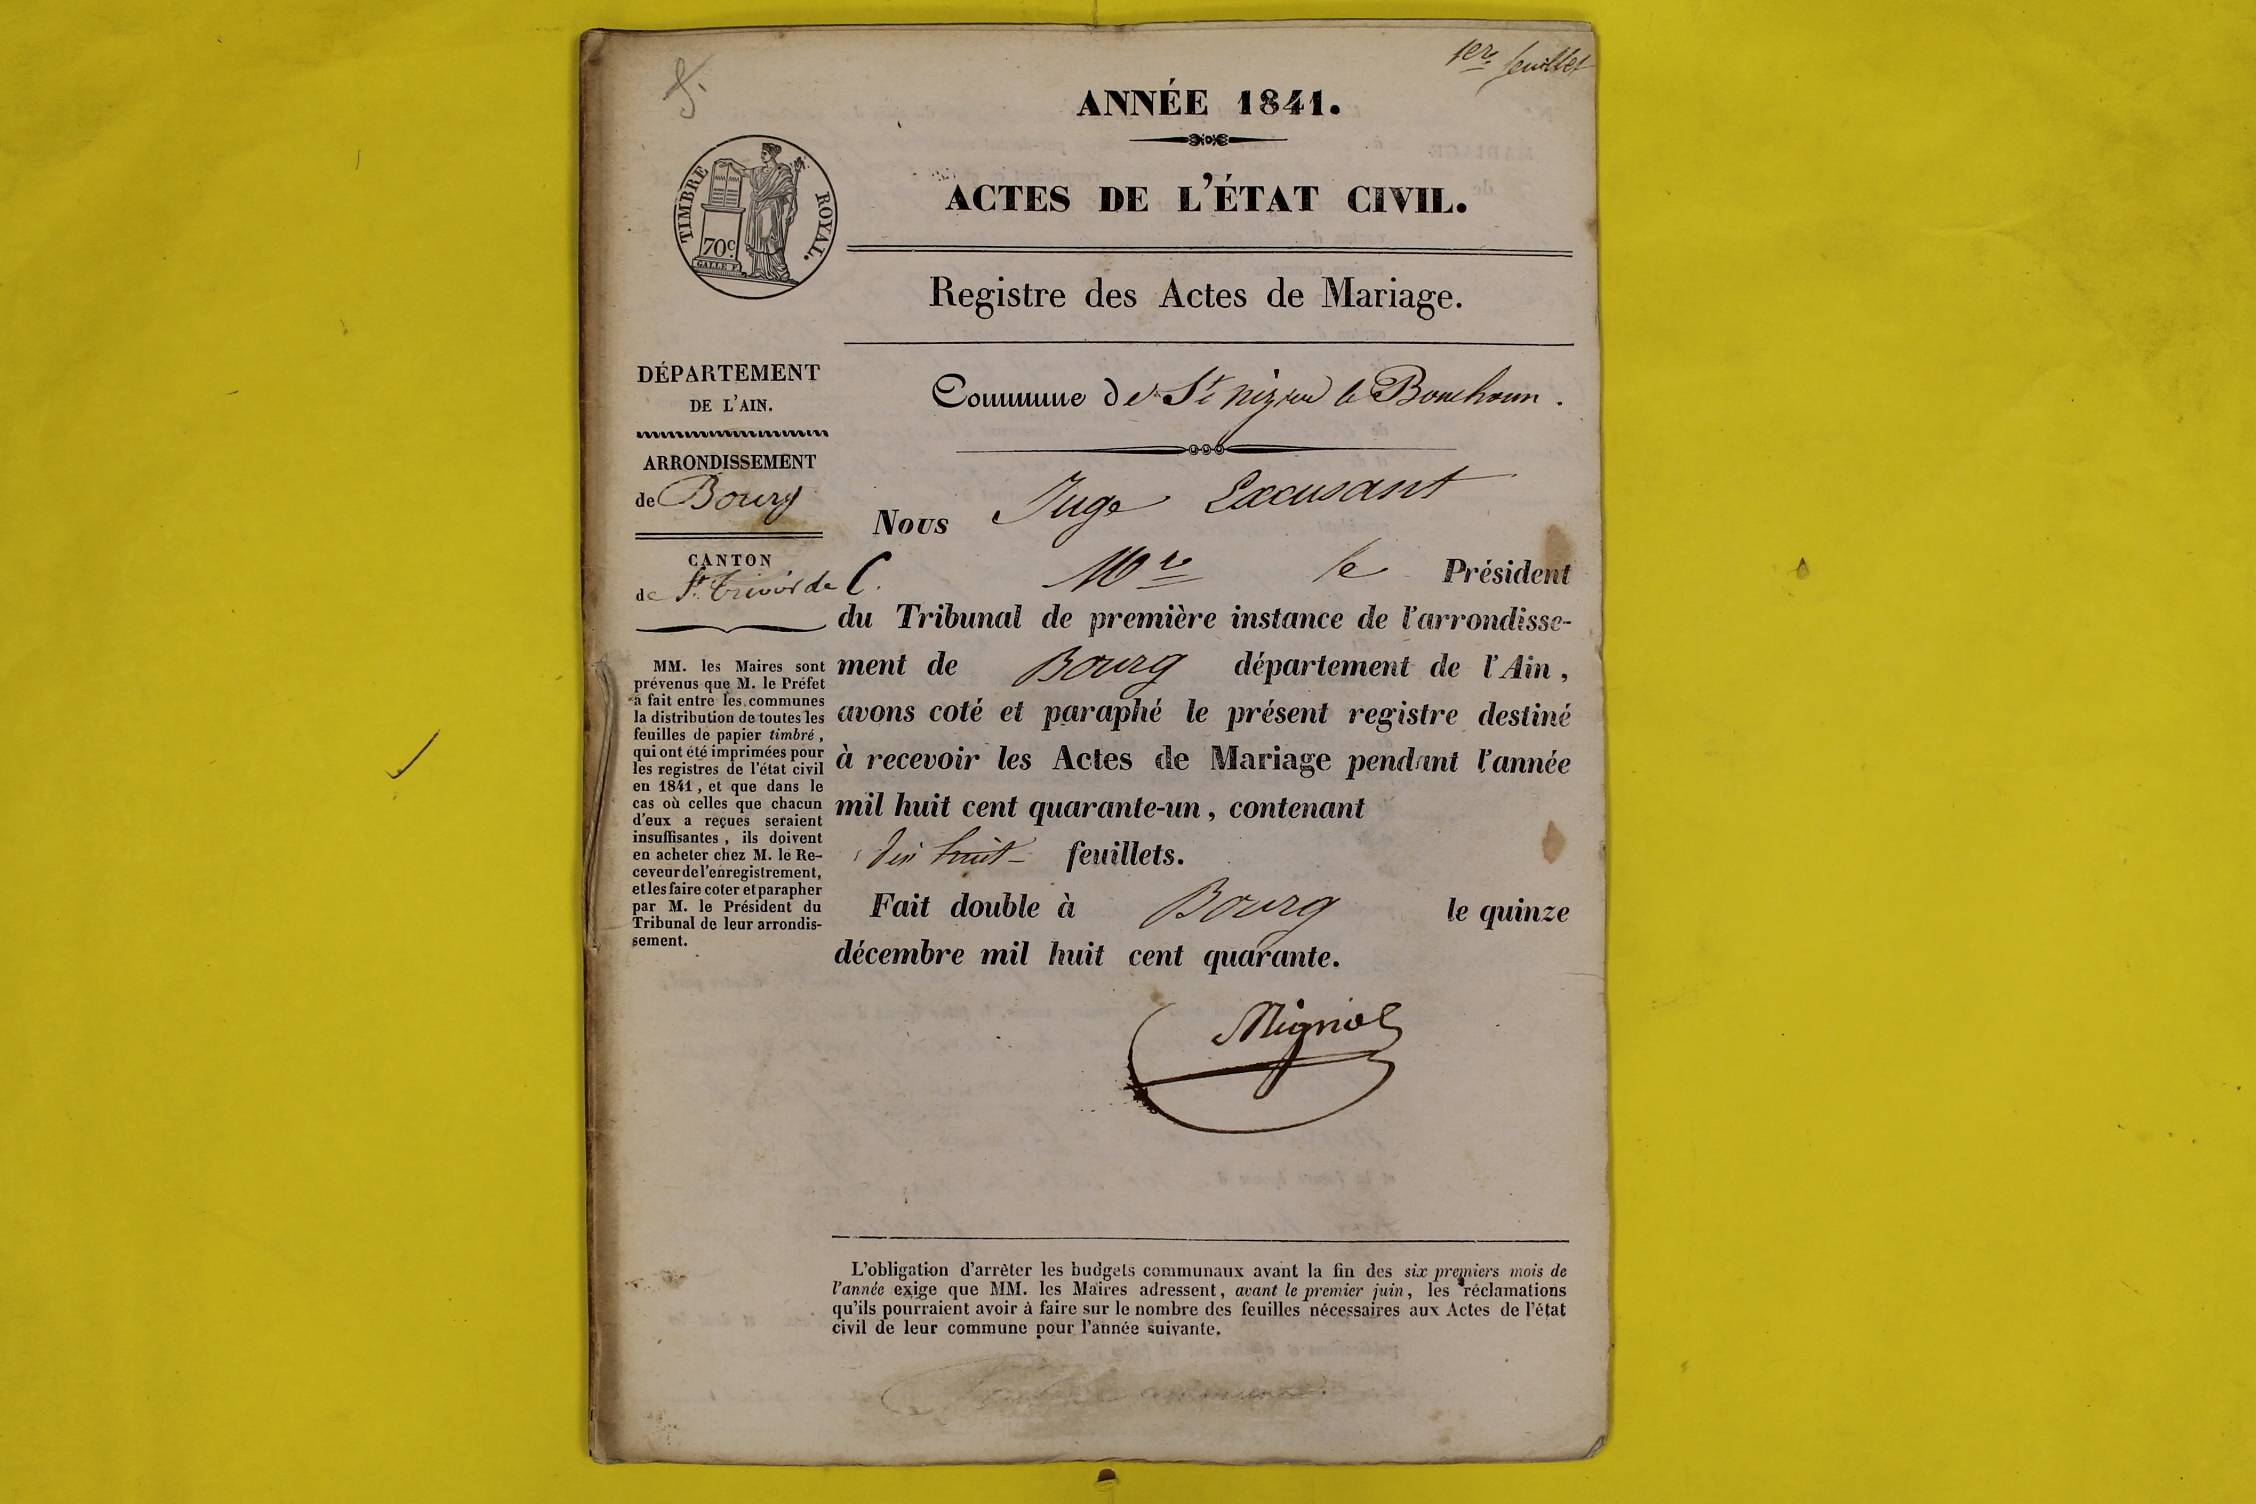 1ere feuillet
ANNÉE 1841.
ACTES DE L'ÉTAT CIVIL.
TIMBRE ROYAL.
70c.
GALLE F.
Registre des Actes de Mariage.
DÉPARTEMENT
DE L'AIN.
ARRONDISSEMENT
de Bourg
CANTON
de St. Trivier de C.
MM. les Maires sont
prévenus que M. le Préfet
a fait entre les communes
la distribution de toutes les
feuilles de papier timbré,
qui ont été imprimées pour
les registres de l'état civil
en 1841, et que dans le
cas où celles que chacun
d'eux a reçues seraient
insuffisantes, ils doivent
en acheter chez M. le Re-
ceveur de l'enregistrement,
et les faire coter et parapher
par M. le Président du
Tribunal de leur arrondis-
sement.
Commune de St nizier le Bouchoux.
Nous Juge Excusant
Mr le Président
du Tribunal de première instance de l'arrondisse-
ment de Bourg département de l'Ain,
avons coté et paraphé le présent registre destiné
à recevoir les Actes de Mariage pendant l'année
mil huit cent quarante-un, contenant
dix huit feuillets.
Fait double à Bourg le quinze
décembre mil huit cent quarante.
L'obligation d'arrêter les budgets communaux avant la fin des six premiers mois de
l'année exige que MM. les Maires adressent, avant le premier juin, les réclamations
qu'ils pourraient avoir à faire sur le nombre des feuilles nécessaires aux Actes de l'état
civil de leur commune pour l'année suivante.